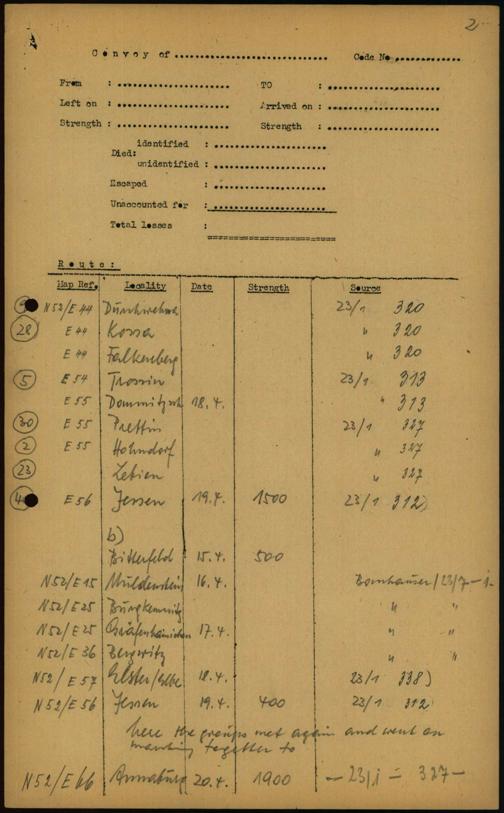 2
Convoy of .............................. Code No ............
From : ..................... TO : .....................
Left on : ..................... Arrived on : .....................
Strength : ..................... Strength : .....................
identified : .....................
Died:
unidentified : .....................
Escaped : .....................
Unaccounted for : .....................
Total losses :
Route:
Map Ref. Locality Date Strength Source
N52/E44 23/1 320
28 E44 Kossa " 320
E44 Falkenberg " 320
5 E54 Trossin 23/1 313
E55 Dommitzsch 18.4. " 313
30 E55 Prettin 23/1 327
2 E55 Hohndorf " 327
23 Lebien " 327
E56 Jessen 19.4. 1500 23/1 312)
b)
Bitterfeld 15.4. 500
N52/E15 Muldenstein 16.4. Bornhauser/23/7-i-
N52/E25 Burgkemnitz " "
N52/E25 Gräfenhainichen 17.4. " "
N52/E36 Bergwitz " "
N52/E57 Elster/Elbe 18.4. 23/1 338)
N52/E56 Jessen 19.4. 400 23/1 312
here the groups met again and went on
marching together to
N52/E66 Annaburg 20.4. 1900 - 23/1 - 327 -